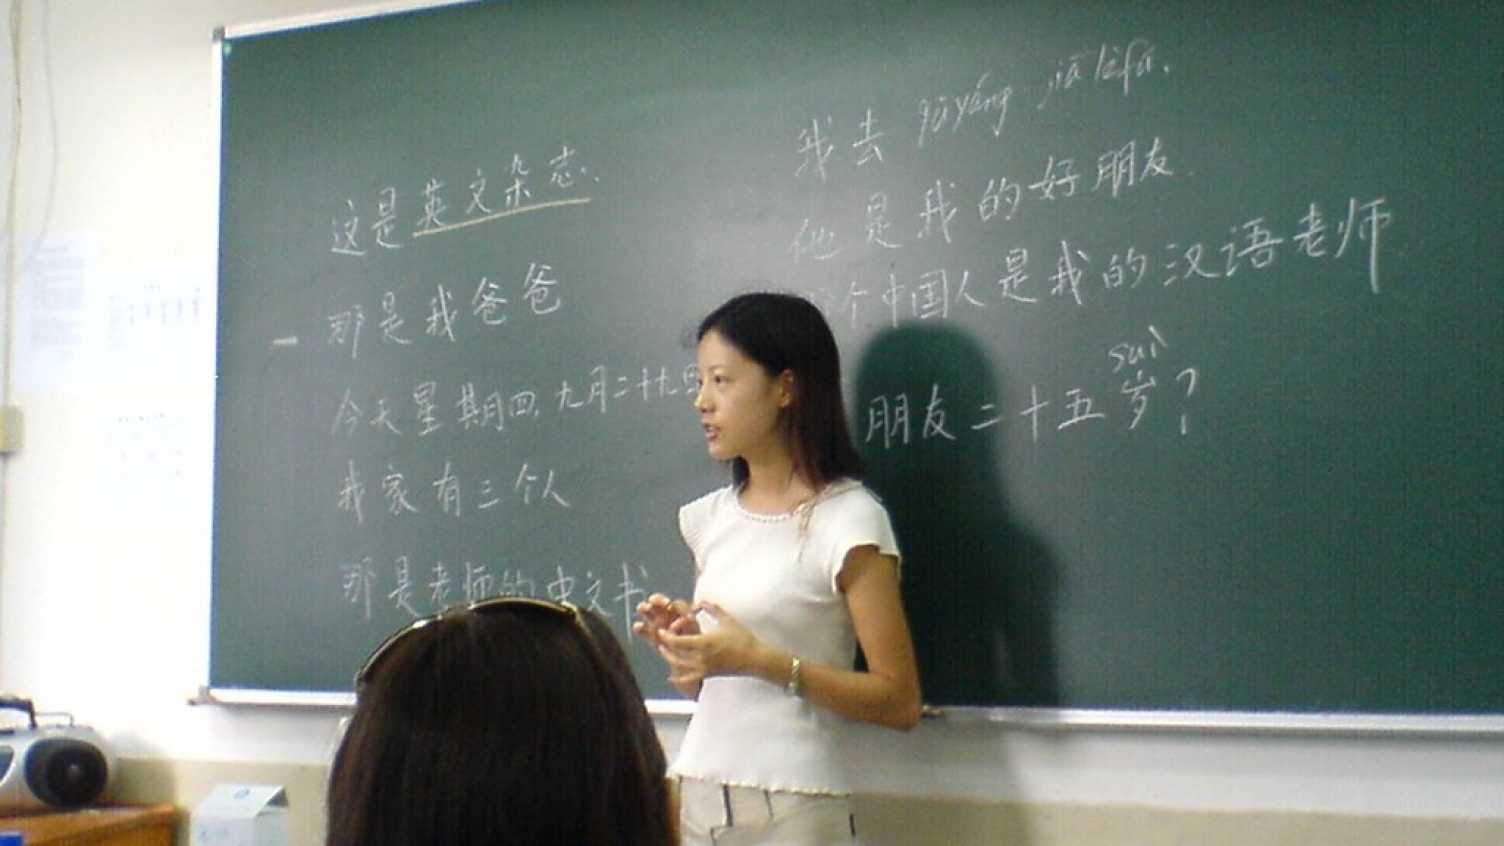 这是英文杂志.
那是我爸爸
今天星期四,九月二十九
我家有三个人
那是老师的中文书
我去 gùyáng jiālèfú.
他是我的好朋友.
个中国人是我的汉语老师
suì
朋友二十五岁?